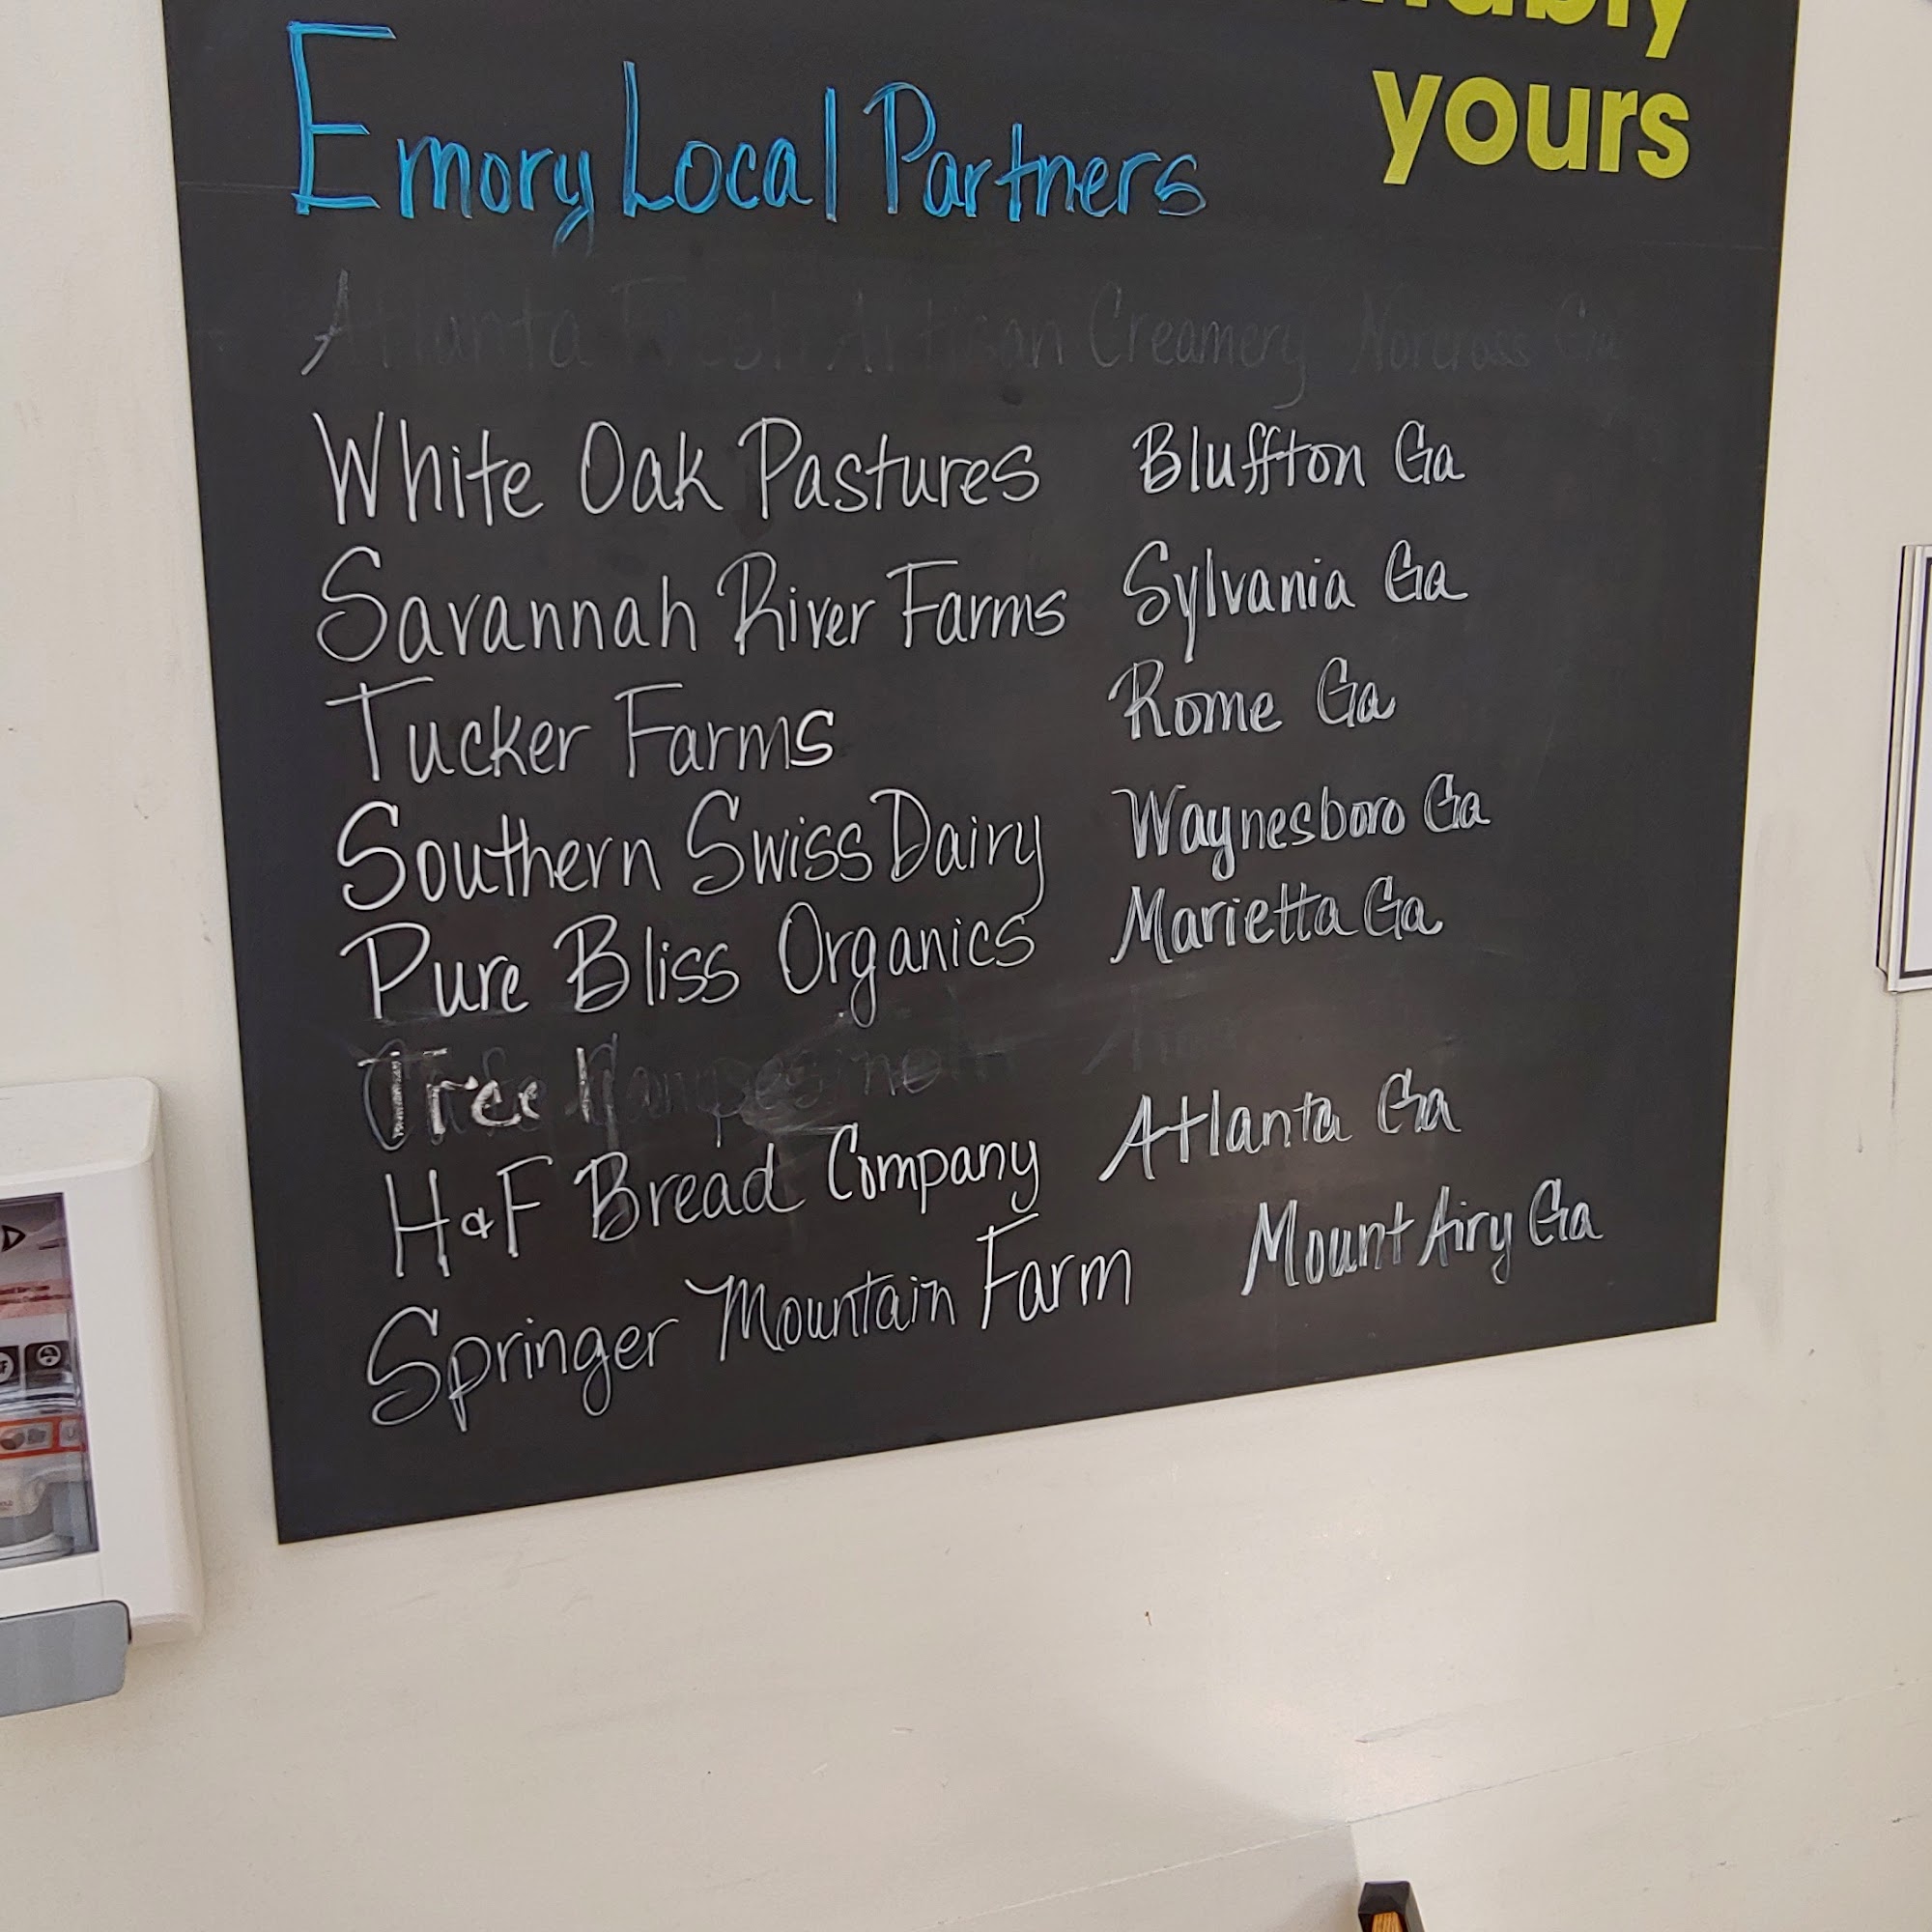 yours
Emory Local Partners
Atlanta Fresh Artisan Creamery Norcross Ga
White Oak Pastures Bluffton Ga
Savannah River Farms Sylvania Ga
Tucker Farms Rome Ga
Southern Swiss Dairy Waynesboro Ga
Pure Bliss Organics Marietta Ga
H&F Bread Company Atlanta Ga
Springer Mountain Farm Mount Airy Ga